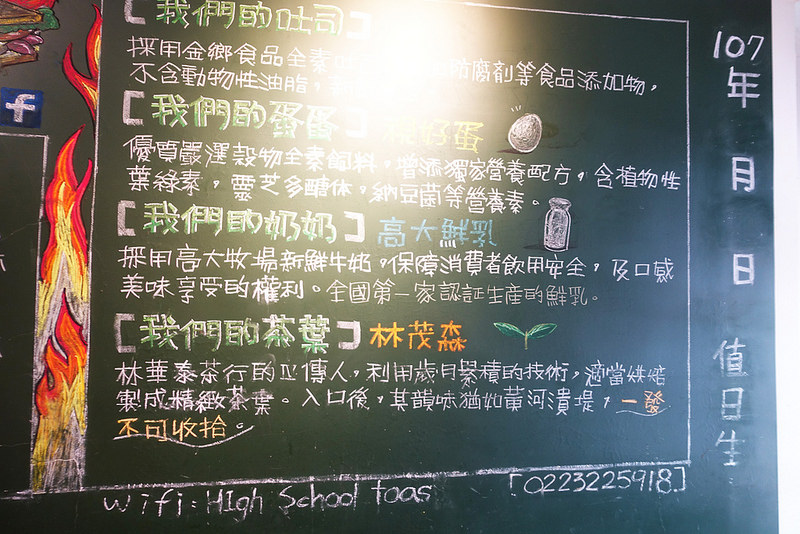 【我們的吐司】
採用金鄉食品全素
防腐劑等食品添加物，
不含動物性油脂，
【我們的蛋蛋】 好蛋
優質嚴選穀物全素飼料，增添獨家營養配方，含植物性
葉綠素，靈芝多醣体，納豆菌等營養素。
【我們的奶奶】 高大鮮乳
採用高大牧場新鮮牛奶，保障消費者飲用安全，及口感
美味享受的權利。全國第一家認証生産的鮮乳。
【我們的茶葉】 林茂森
林華泰茶行的正傳人，利用歲月累積的技術，適當烘焙
製成精緻茶葉。入口後，其韻味猶如黃河潰堤，一發
不可收拾。
wifi: HIgh School toas 「0223225918」
107
年
月
日
值日生
f